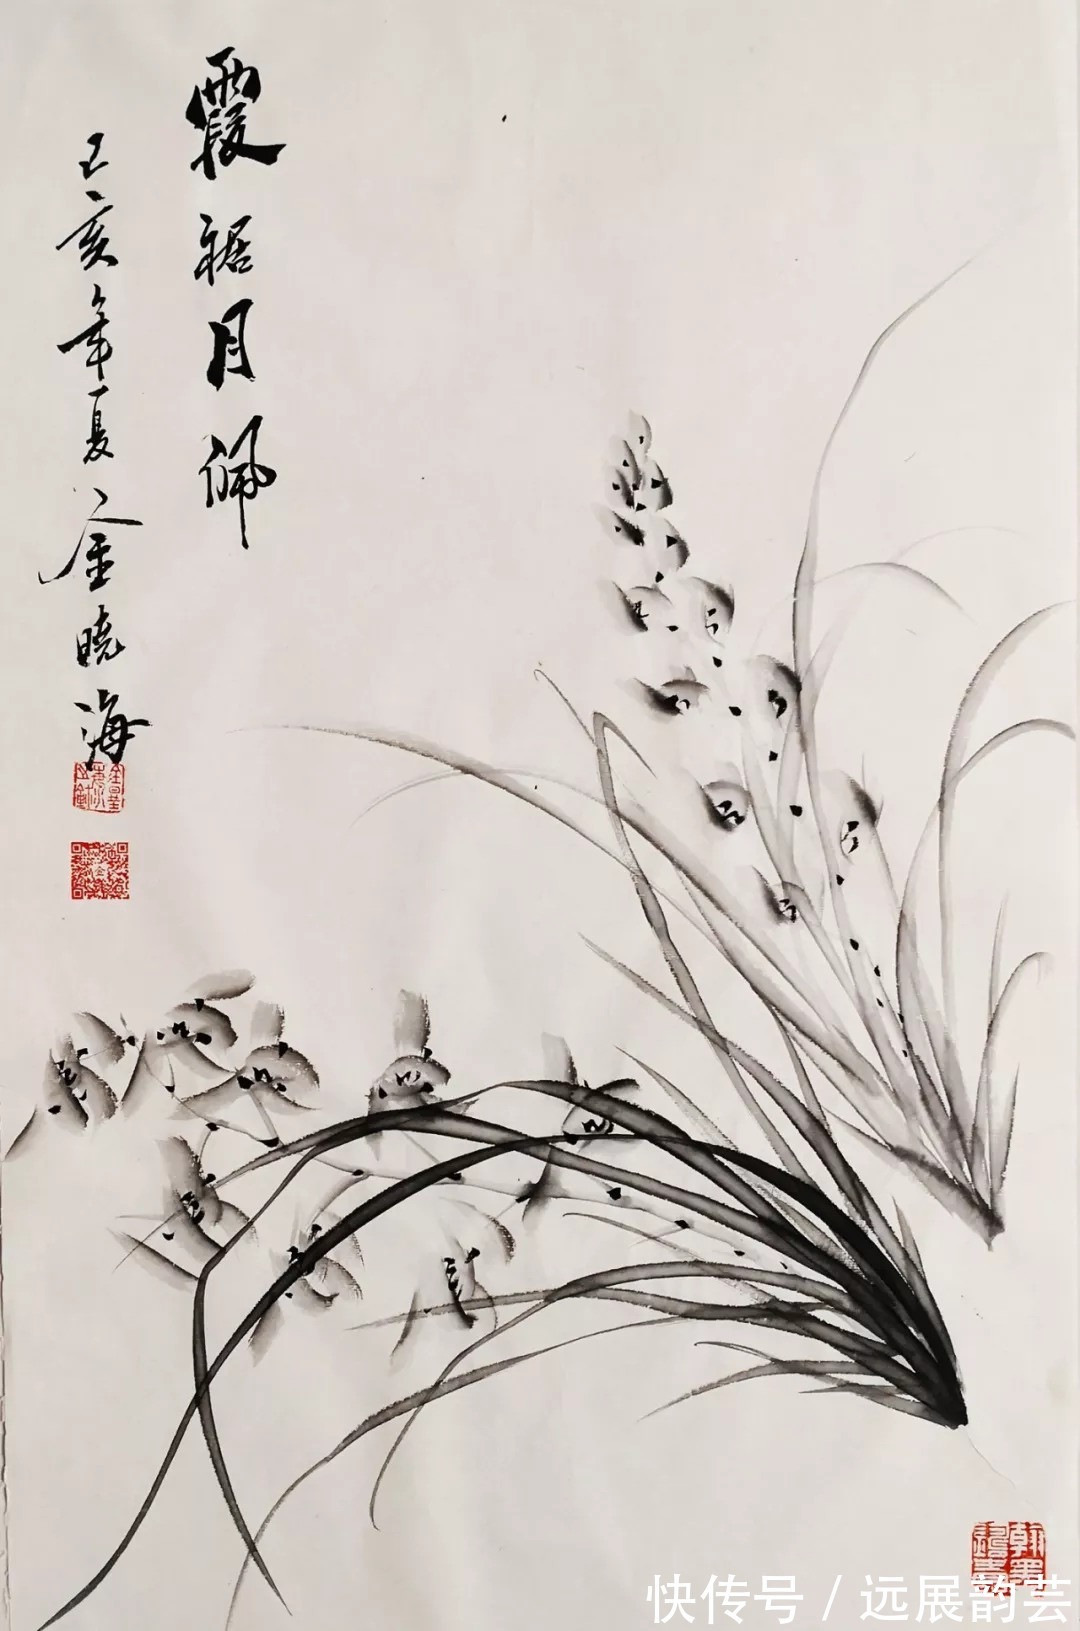 霞裾月佩
己亥年夏金晓海
快传号 / 远展韵芸